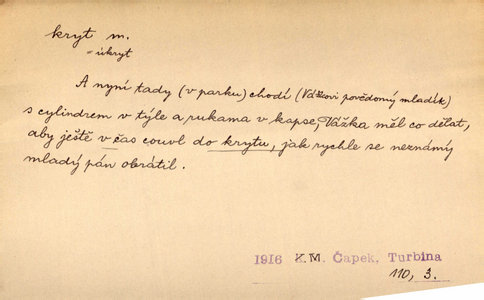 kryt m.
= úkryt
A nyní tady (v parku) chodí (Vážkovi povědomý mladík)
s cylindrem v týle a rukama v kapse, Vážka měl co dělat,
aby ještě v čas couvl do krytu, jak rychle se neznámý
mladý pán obrátil.
1916 K.M. Čapek, Turbina
110, 3.